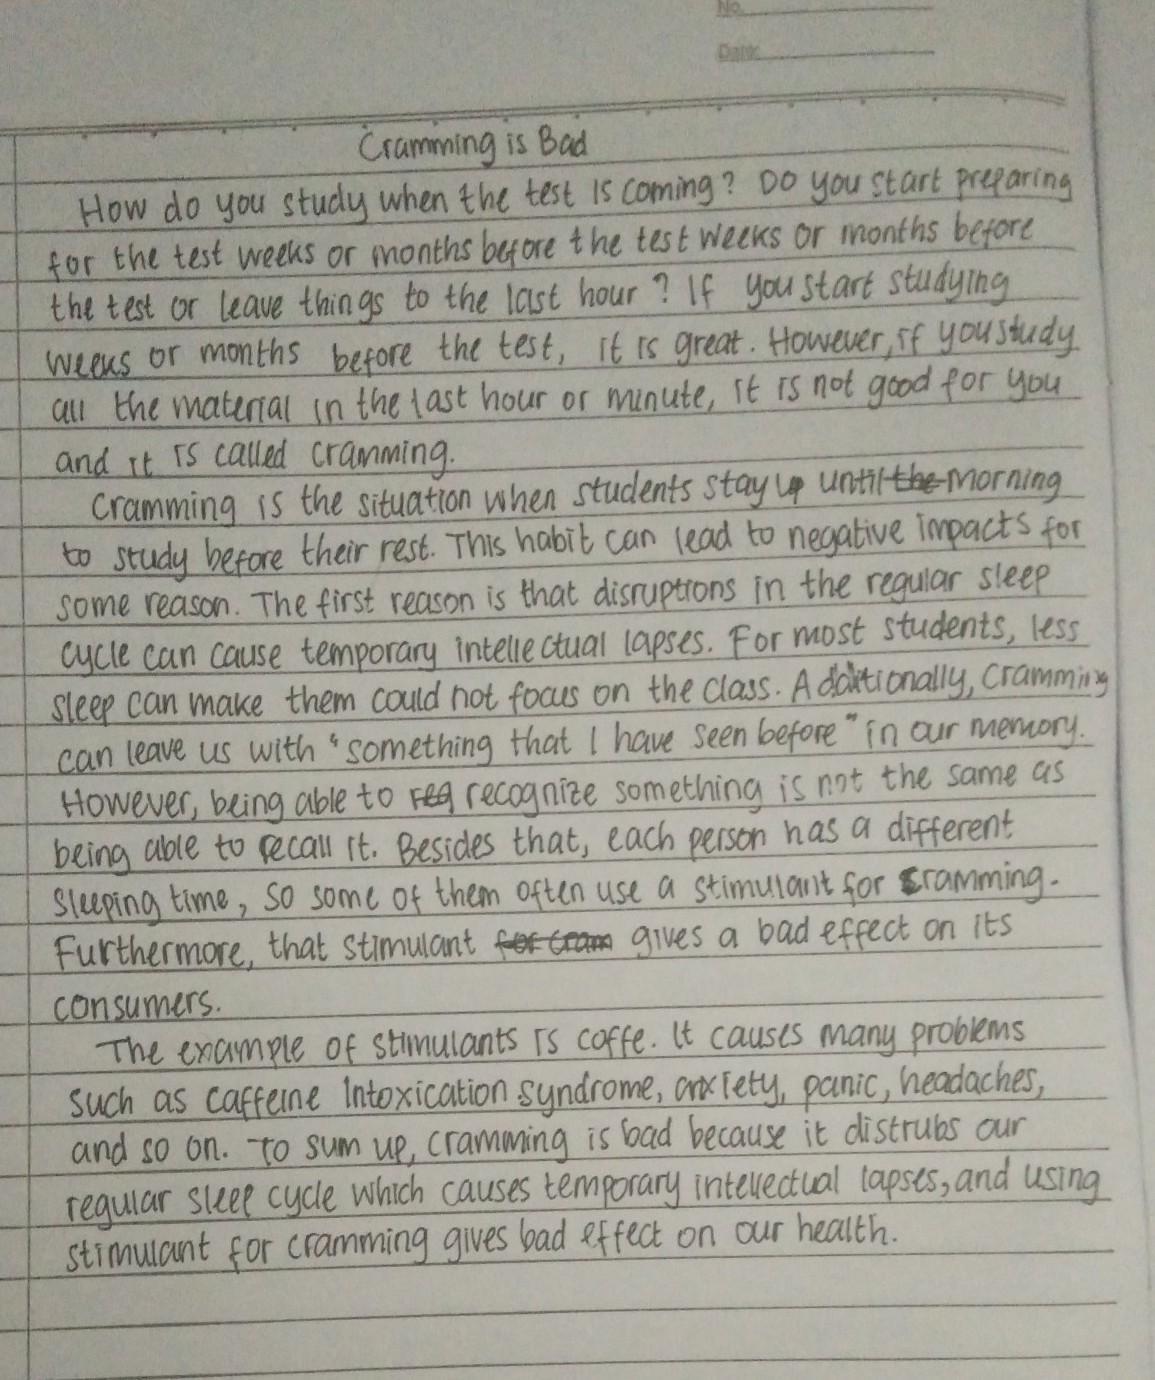 No.
Date:
Cramming is Bad
How do you study when the test is coming? Do you start preparing
for the test weeks or months before the test weeks or months before
the test or leave things to the last hour? If you start studying
weeks or months before the test, it is great. However, if you study
all the material in the last hour or minute, it is not good for you
and it is called cramming.
Cramming is the situation when students stay up until the morning
to study before their rest. This habit can lead to negative impacts for
some reason. The first reason is that disruptions in the regular sleep
cycle can cause temporary intellectual lapses. For most students, less
sleep can make them could not focus on the class. Additionally, cramming
can leave us with "something that I have seen before" in our memory.
However, being able to reg recognize something is not the same as
being able to recall it. Besides that, each person has a different
sleeping time, so some of them often use a stimulant for cramming.
Furthermore, that stimulant for cram gives a bad effect on its
consumers.
The example of stimulants is coffe. It causes many problems
such as caffeine Intoxication syndrome, anxiety, panic, headaches,
and so on. To sum up, cramming is bad because it distrubs our
regular sleep cycle which causes temporary intellectual lapses, and using
stimulant for cramming gives bad effect on our health.